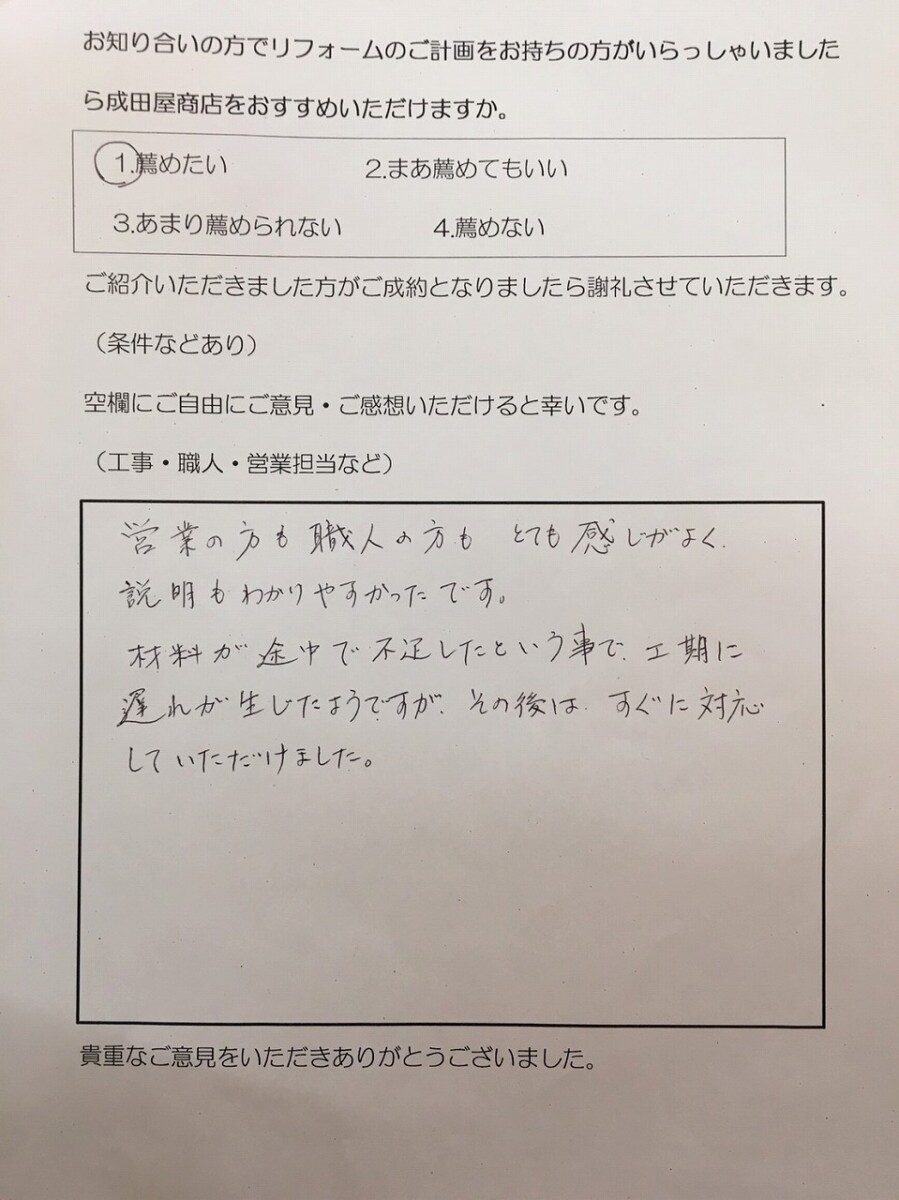 お知り合いの方でリフォームのご計画をお持ちの方がいらっしゃいました
ら成田屋商店をおすすめいただけますか。
1.薦めたい 2.まあ薦めてもいい
3.あまり薦められない 4.薦めない
ご紹介いただきました方がご成約となりましたら謝礼させていただきます。
（条件などあり）
空欄にご自由にご意見・ご感想いただけると幸いです。
（工事・職人・営業担当など）
営業の方も職人の方も とても感じがよく、
説明もわかりやすかったです。
材料が途中で不足したという事で、工期に
遅れが生じたようですが、その後は、すぐに対応
していただけました。
貴重なご意見をいただきありがとうございました。